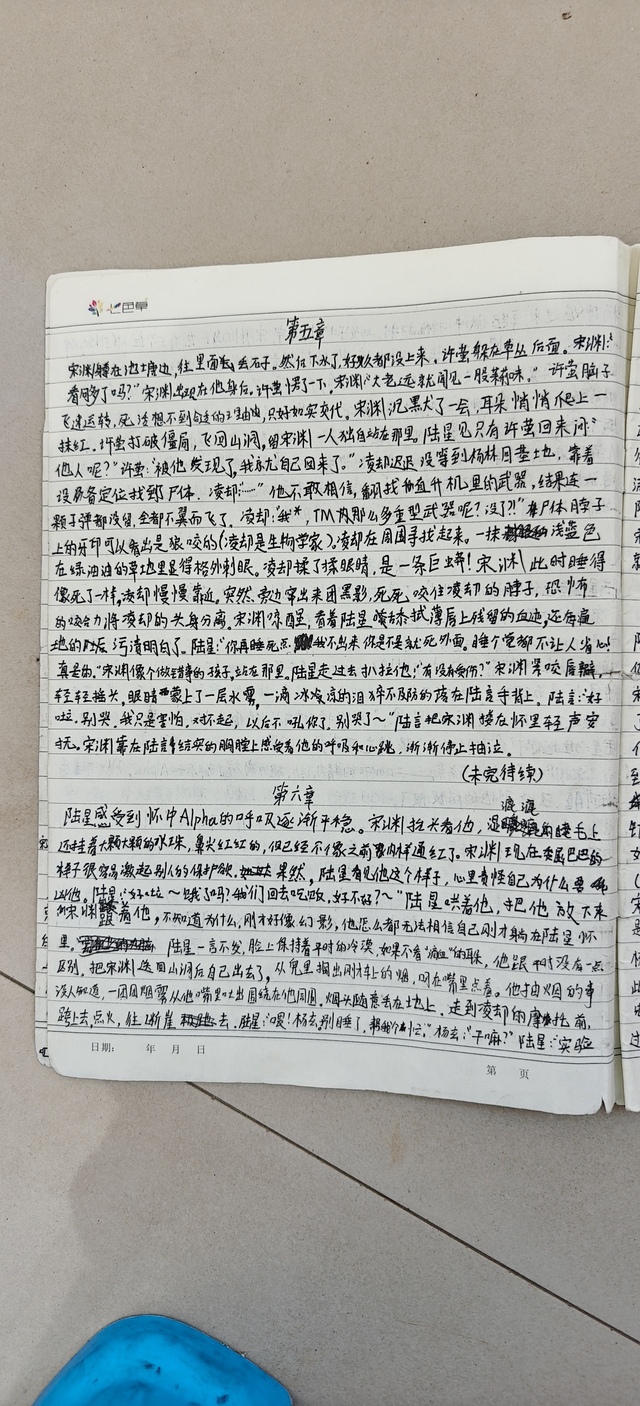 七色草
第五章
宋渊蹲在池塘边，往里面丢石子。然后下水了，好久都没上来。许萤躲在草丛后面。宋渊：“
看够了吗？”宋渊出现在他身后。许萤愣了一下，宋渊：“大老远就闻见一股茉莉味。”许萤脑子
飞速运转，死活想不到合适的理由，只好如实交代。宋渊沉默了一会，耳朵悄悄爬上一
抹红。许萤打破僵局，飞回山洞，留宋渊一人独自站在那里。陆星见只有许萤回来问：“
他人呢？”许萤：“被他发现了，我就自己回来了。”凌却迟迟没等到杨林回基地，靠着
设备定位找到尸体。凌却：“……”他不敢相信，翻找直升机里的武器，结果连一
颗子弹都没留，全都不翼而飞了。凌却：“我*，TM那么多重型武器呢？没了？！”尸体脖子
上的牙印可以看出是狼咬的（凌却是生物学家）。凌却在周围寻找起来。一抹浅蓝色
在绿油油的草地里显得格外刺眼。凌却揉了揉眼睛，是一条巨蟒！宋渊此时睡得
像死了一样，凌却慢慢靠近。突然，旁边窜出来团黑影，死死咬住凌却的脖子，恐怖
的咬合力将凌却的头身分离。宋渊惊醒，看着陆星擦拭薄唇上残留的血迹，还有遍
地的血污清明白了。陆星：“你再睡死点，我不出来你是不是就死外面。睡个觉都不让人省心！
真是的。”宋渊像个做错事的孩子，站在那里。陆星走过去扒拉他：“有没有受伤？”宋渊紧咬唇瓣，
轻轻摇头，眼睛蒙上了一层水雾，一滴冰凉的泪猝不及防的落在陆星手背上。陆星：“好
啦，别哭，我只是害怕。对不起，以后不吼你了，别哭了～”陆星把宋渊搂在怀里轻声安
抚。宋渊靠在陆星结实的胸膛上感受着他的呼吸和心跳，渐渐停止抽泣。
（未完待续）
第六章
陆星感受到怀中Alpha的呼吸逐渐平稳。宋渊抬头看他，湿漉漉的睫毛上
还挂着大颗大颗的水珠，鼻尖红红的，但已经不像之前那样通红了。宋渊现在委屈巴巴的
样子很容易激起别人的保护欲。果然，陆星看见他这个样子，心里责怪自己为什么要
凶他。陆星：“好啦～饿了吗？我们回去吃饭，好不好？～”陆星哄着他，把他放下来
宋渊跟着他，不知道为什么，刚才好像幻影，他怎么都无法相信自己刚才躺在陆星怀
里。陆星一言不发，脸上保持着平时的冷漠，如果不看“滴血”的耳朵，他跟平时没有一点
区别，把宋渊送回山洞后自己出去了，从兜里掏出刚才的烟，叼在嘴里点着。他抽烟的事
没人知道，一团团烟雾从他嘴里吐出围绕在他周围，烟头随意丢在地上。走到凌却的摩托前，
跨上去点火，往断崖去。陆星：“喂！杨玄，别睡了，帮我个忙。”杨玄：“干嘛？”陆星：“实验
日期： 年 月 日
第 页